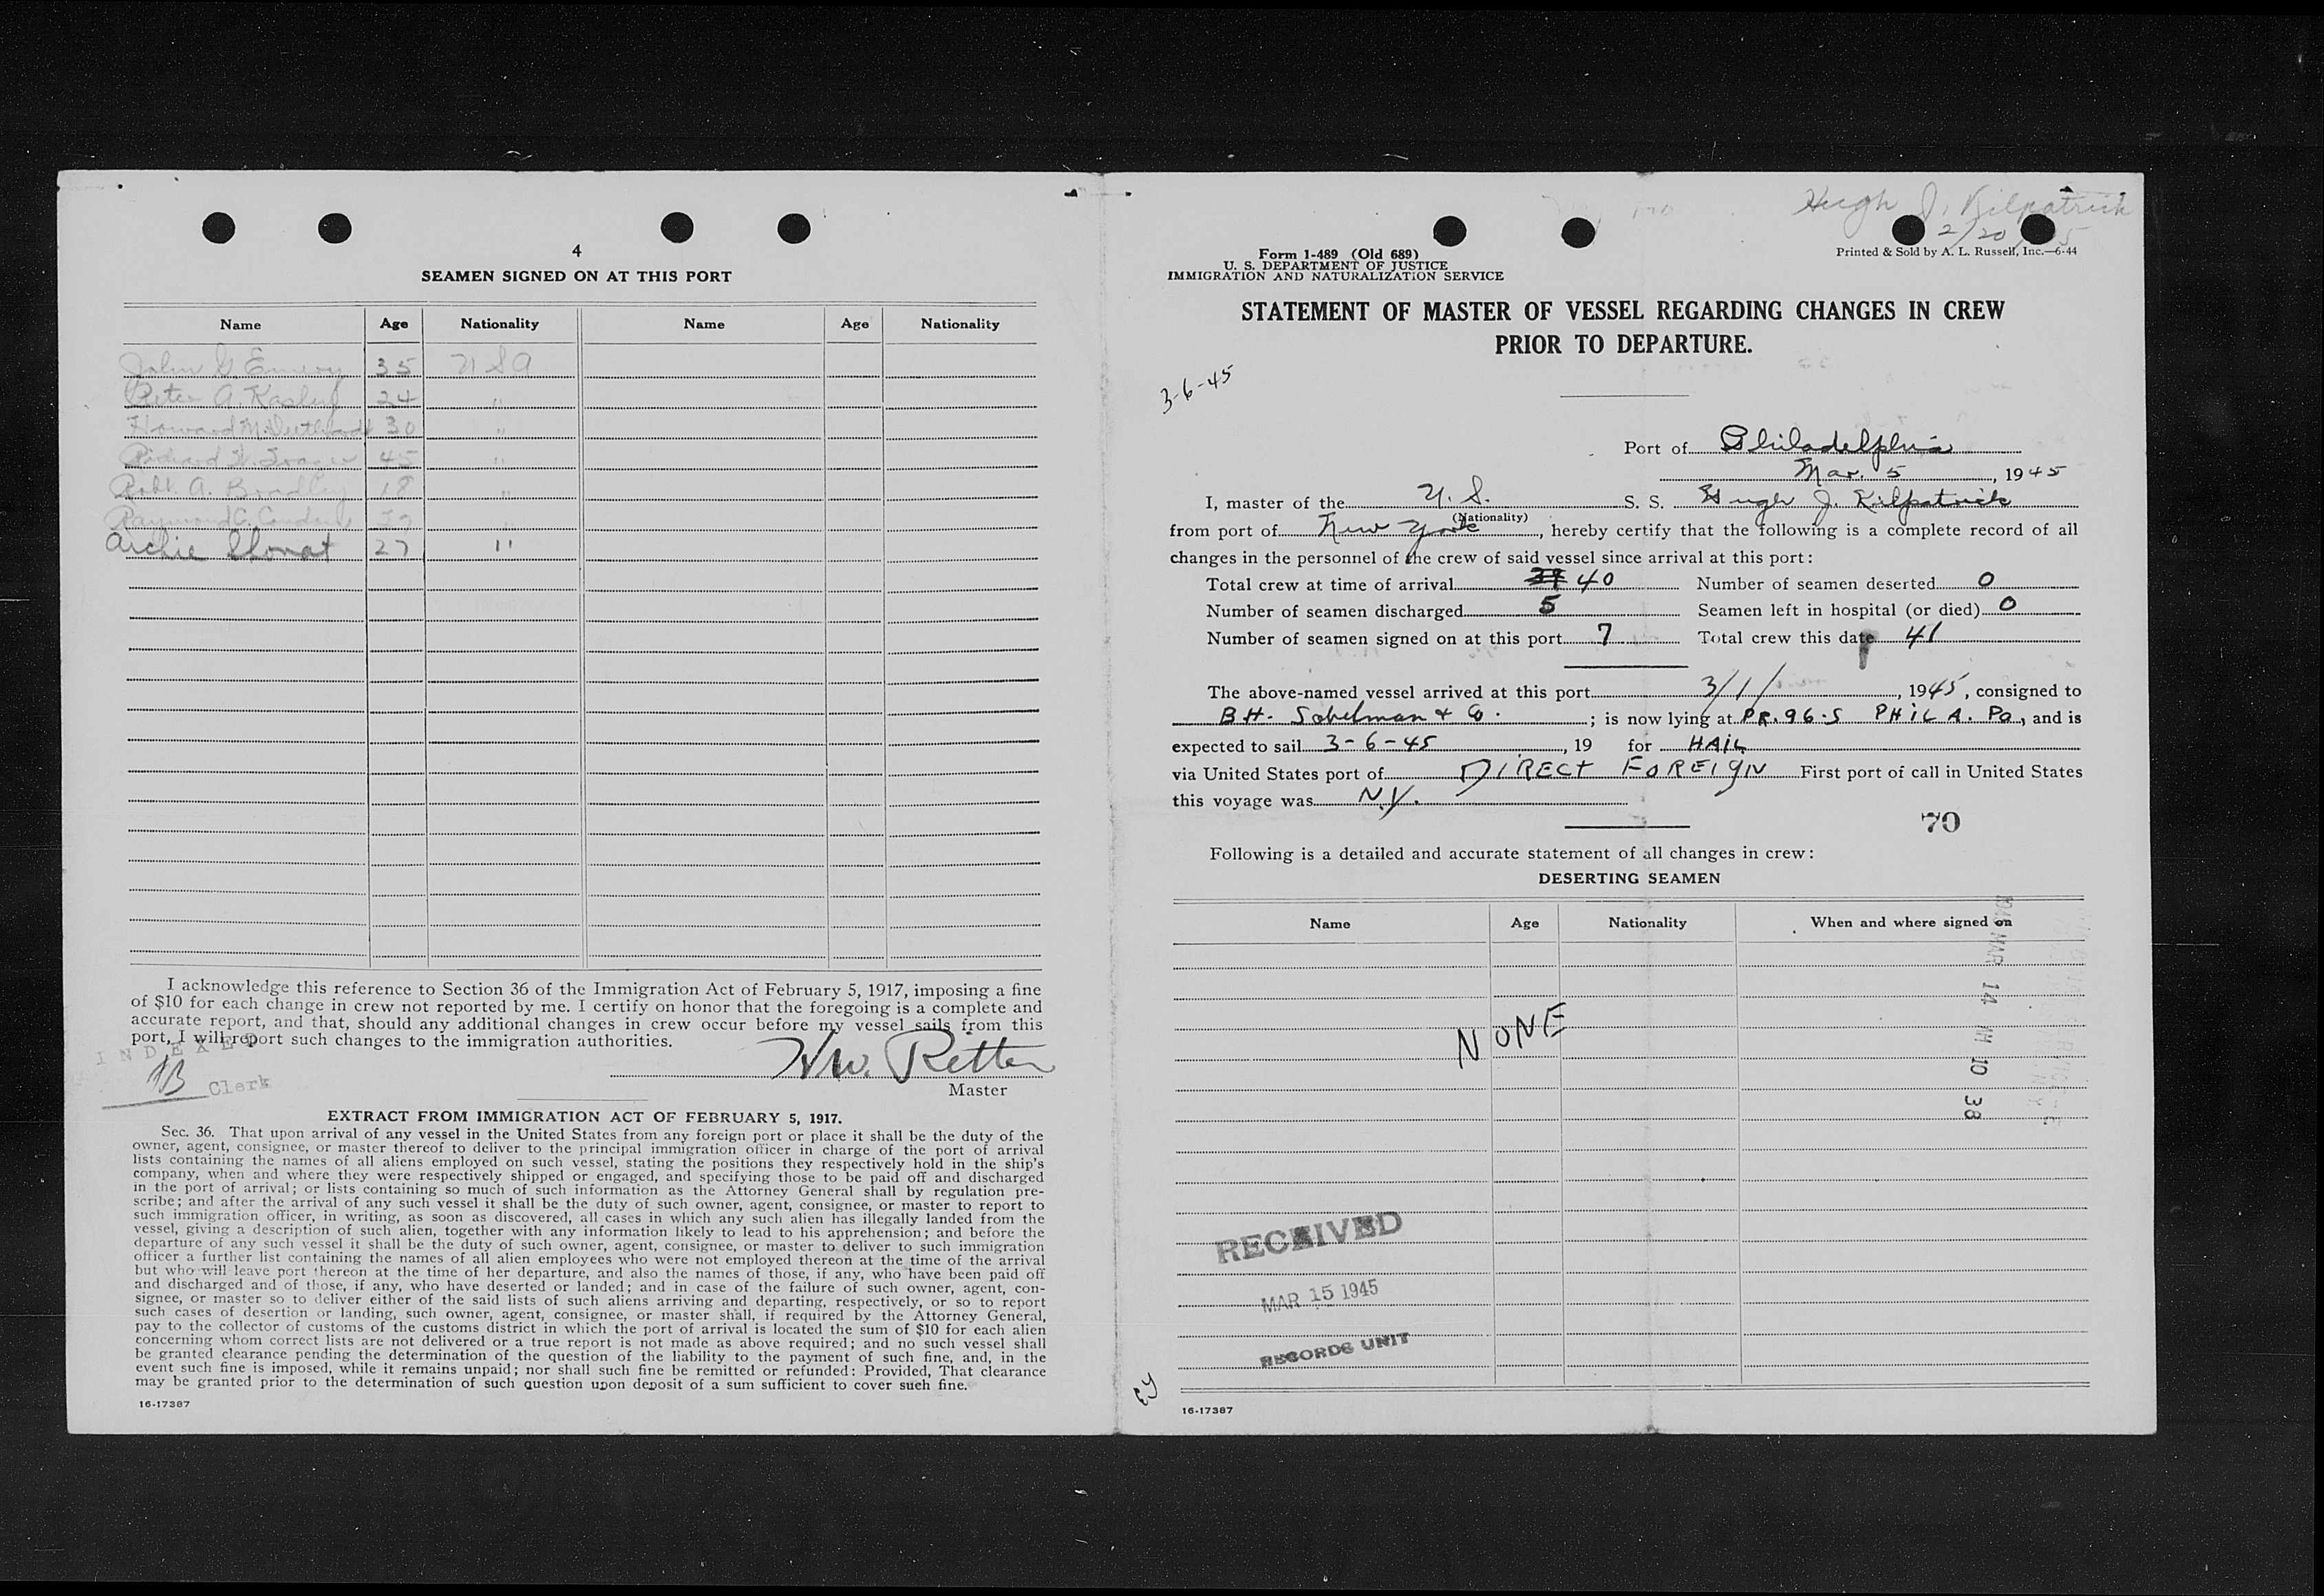 4
SEAMEN SIGNED ON AT THIS PORT
Name Age Nationality Name Age Nationality
John G Emery 35 USA
Peter A. 24 "
Howard M. 30 "
Richard 45 "
Robt. A. Bradley 18 "
Raymond C. "
Archie 27 "
I acknowledge this reference to Section 36 of the Immigration Act of February 5, 1917, imposing a fine
of $10 for each change in crew not reported by me. I certify on honor that the foregoing is a complete and
accurate report, and that, should any additional changes in crew occur before my vessel sails from this
port, I will report such changes to the immigration authorities.
INDEXED
Clerk
HW. Retter
Master
EXTRACT FROM IMMIGRATION ACT OF FEBRUARY 5, 1917.
Sec. 36. That upon arrival of any vessel in the United States from any foreign port or place it shall be the duty of the
owner, agent, consignee, or master thereof to deliver to the principal immigration officer in charge of the port of arrival
lists containing the names of all aliens employed on such vessel, stating the positions they respectively hold in the ship's
company, when and where they were respectively shipped or engaged, and specifying those to be paid off and discharged
in the port of arrival; or lists containing so much of such information as the Attorney General shall by regulation pre-
scribe; and after the arrival of any such vessel it shall be the duty of such owner, agent, consignee, or master to report to
such immigration officer, in writing, as soon as discovered, all cases in which any such alien has illegally landed from the
vessel, giving a description of such alien, together with any information likely to lead to his apprehension; and before the
departure of any such vessel it shall be the duty of such owner, agent, consignee, or master to deliver to such immigration
officer a further list containing the names of all alien employees who were not employed thereon at the time of the arrival
but who will leave port thereon at the time of her departure, and also the names of those, if any, who have been paid off
and discharged and of those, if any, who have deserted or landed; and in case of the failure of such owner, agent, con-
signee, or master so to deliver either of the said lists of such aliens arriving and departing, respectively, or so to report
such cases of desertion or landing, such owner, agent, consignee, or master shall, if required by the Attorney General,
pay to the collector of customs of the customs district in which the port of arrival is located the sum of $10 for each alien
concerning whom correct lists are not delivered or a true report is not made as above required; and no such vessel shall
be granted clearance pending the determination of the question of the liability to the payment of such fine, and, in the
event such fine is imposed, while it remains unpaid; nor shall such fine be remitted or refunded: Provided, That clearance
may be granted prior to the determination of such question upon deposit of a sum sufficient to cover such fine.
16-17387
Hugh J. Kilpatrick
2/20/45
Form I-489 (Old 689)
U. S. DEPARTMENT OF JUSTICE
IMMIGRATION AND NATURALIZATION SERVICE
Printed & Sold by A. L. Russell, Inc.—6-44
STATEMENT OF MASTER OF VESSEL REGARDING CHANGES IN CREW
PRIOR TO DEPARTURE.
3-6-45
Port of Philadelphia
Mar. 5, 1945
I, master of the U. S. S. S. Hugh J. Kilpatrick
(Nationality)
from port of New York, hereby certify that the following is a complete record of all
changes in the personnel of the crew of said vessel since arrival at this port:
Total crew at time of arrival 39 40 Number of seamen deserted 0
Number of seamen discharged 5 Seamen left in hospital (or died) 0
Number of seamen signed on at this port 7 Total crew this date 41
The above-named vessel arrived at this port 3/1/, 1945, consigned to
B.H. Sobelman & Co.; is now lying at PR. 96-S PHILA. Pa, and is
expected to sail 3-6-45, 19 for HAIL
via United States port of DIRECT FOREIGN First port of call in United States
this voyage was N.Y.
70
Following is a detailed and accurate statement of all changes in crew:
DESERTING SEAMEN
Name Age Nationality When and where signed on
NONE
1945 MAR 14 AM 10 38
RECEIVED
MAR 15 1945
RECORDS UNIT
EY
16-17387